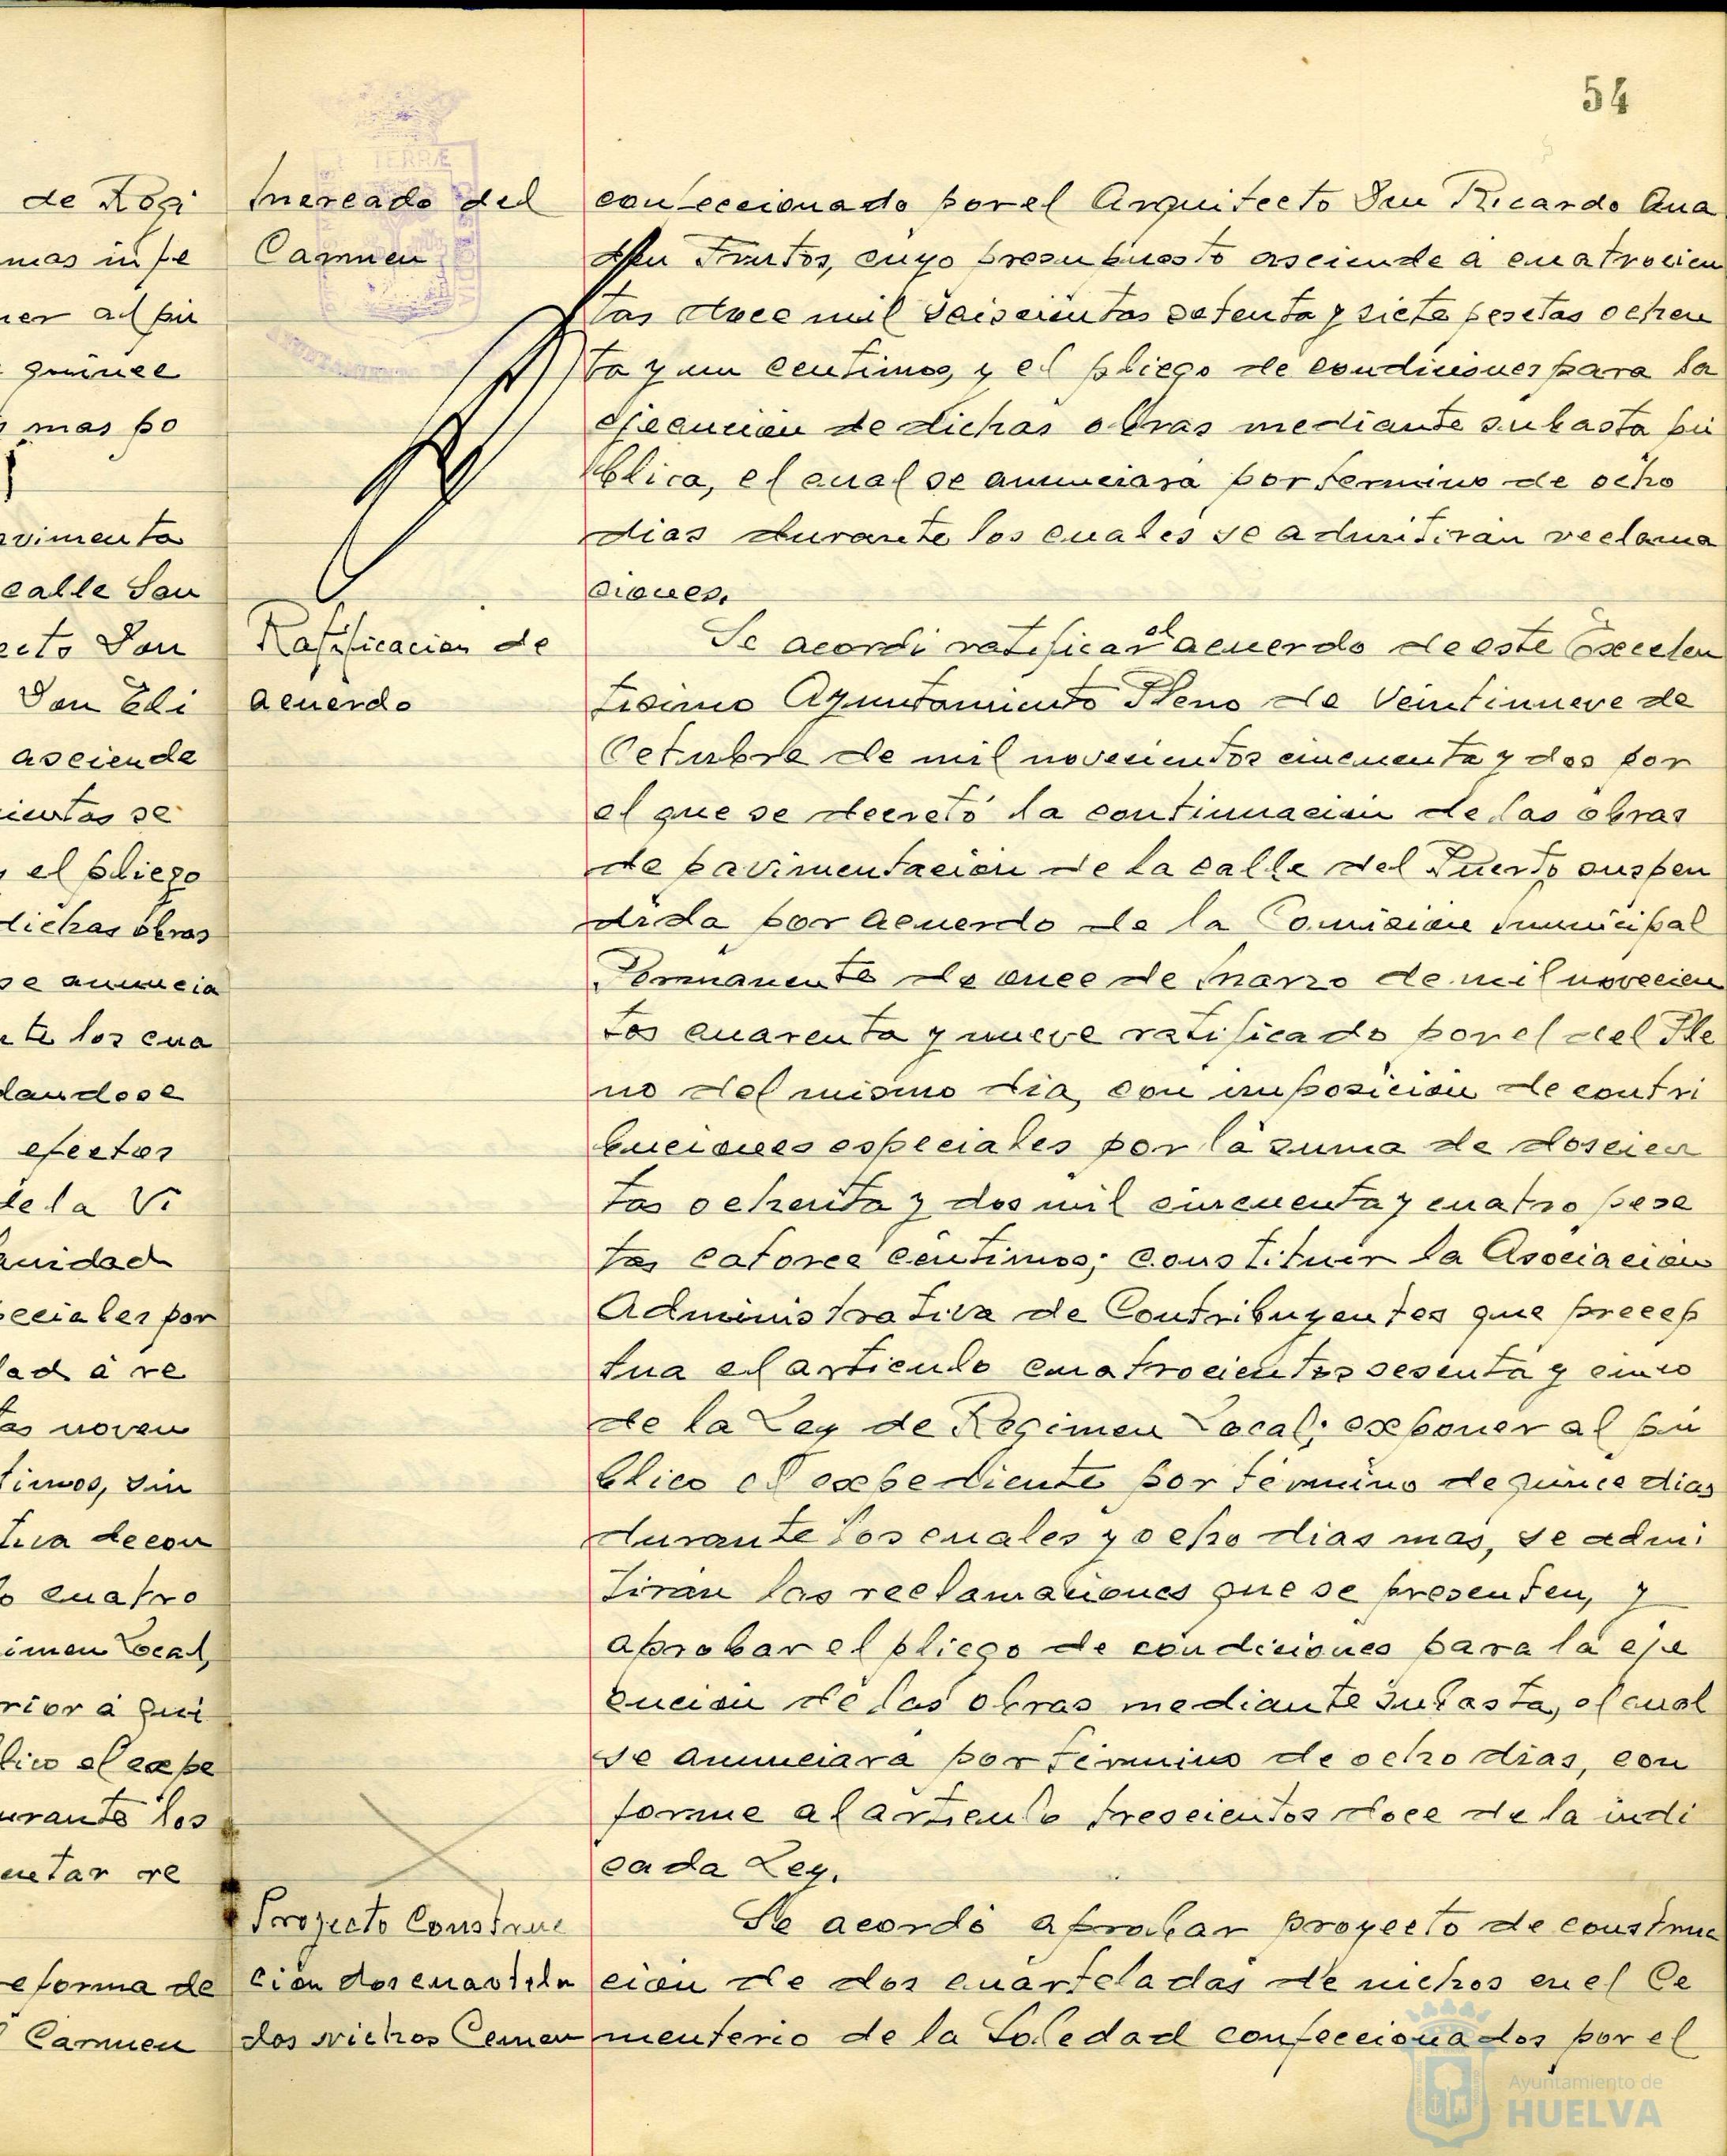 54
de Rogi
mas infe
ner al pú
quince
mas po
vimenta
calle San
ecto Don
Don Eli
asciende
cientas se
el pliego
dichas obras
se anuncia
te los cua
dandose
efectos
de la Vi
anidad
peciales por
dad á re
tas noven
timos, sin
tiva de con
cuatro
imen Local,
rior á qui
lico el expe
urante los
entar re
eforma de
Carmen
Mercado del
Carmen
Ratificacion de
acuerdo
Proyecto Construc
cion dos cuartela
das nichos Cemen
TERRÆ
confeccionado por el Arquitecto Don Ricardo Ana
don Frutos, cuyo presupuesto asciende a cuatrocien
tas doce mil seiscientas setenta y siete pesetas ochen
ta y un centimos, y el pliego de condiciones para la
ejecución de dichas obras mediante subasta pú
blica, el cual se anunciará por termino de ocho
dias durante los cuales se admitirán reclama
ciones.
Se acordó ratificar el acuerdo de este Excelen
tisimo Ayuntamiento Pleno de Veintinueve de
Octubre de mil novecientos cincuenta y dos por
el que se decretó la continuacion de las obras
de pavimentacion de la calle del Puerto suspen
dida por acuerdo de la Comision Municipal
Permanente de once de Marzo de mil novecien
tos cuarenta y nueve ratificado por el del Ple
no del mismo dia, con imposicion de contri
buciones especiales por la suma de doscien
tas ochenta y dos mil cincuenta y cuatro pese
tas catorce centimos; constituir la Asociacion
Administrativa de Contribuyentes que precep
tua el articulo cuatrocientos sesenta y cinco
de la Ley de Regimen Local; exponer al pú
blico el expediente por término de quince dias
durante los cuales y ocho dias mas, se admi
tirán las reclamaciones que se presenten, y
aprobar el pliego de condiciones para la eje
cucion de las obras mediante subasta, el cual
se anunciará por término de ocho dias, con
forme al articulo trescientos doce de la indi
cada Ley.
Se acordó aprobar proyecto de construc
cion de dos cuarteladas de nichos en el Ce
menterio de la Soledad confeccionados por el
Ayuntamiento de
HUELVA